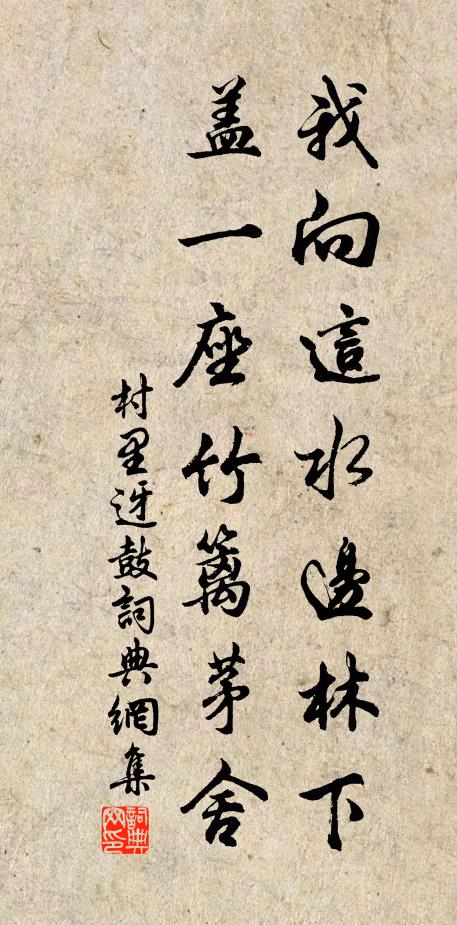 我向這水邊林下
盖一座竹籬茅舍
村里迓鼓詞典網集
詞典网印